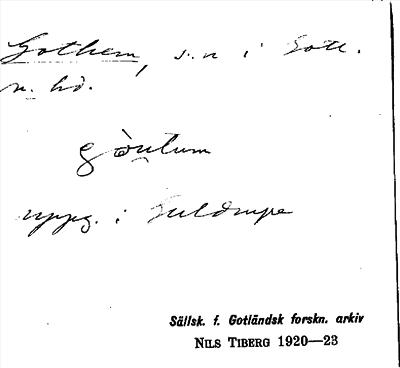 Gothem, s.n i Gotl.
n. hd.
gòutum
uppg. i Guldrupe
Sällsk. f. Gotländsk forskn. arkiv
NILS TIBERG 1920—23